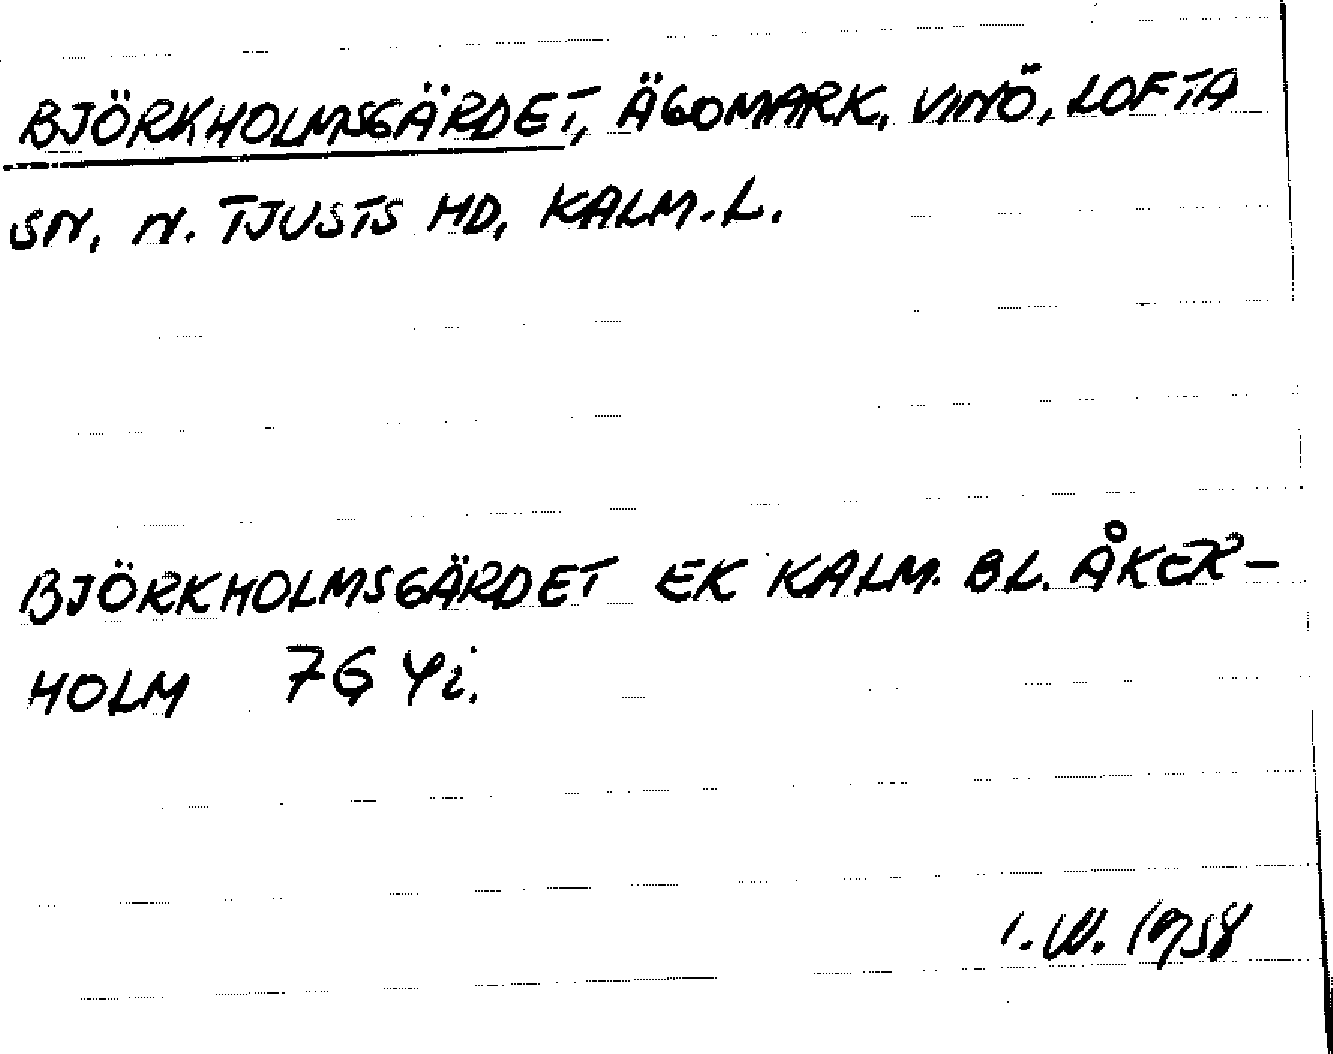 BJÖRKHOLMSGÄRDET, ÄGOMARK, VINÖ, LOFTA
SN, N. TJUSTS HD, KALM. L.
BJÖRKHOLMSGÄRDET EK KALM. BL. ÅKER-
HOLM 7G 4i.
I.W. 1958